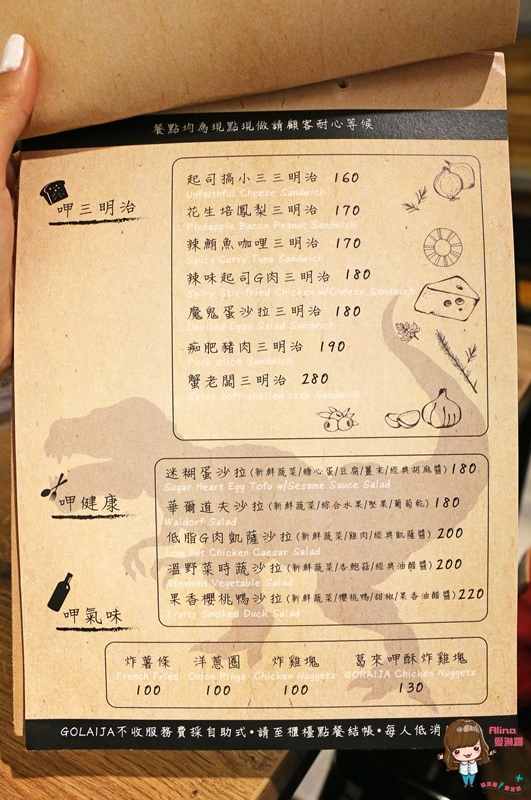 餐點均為現點現做請顧客耐心等候
呷三明治
起司搞小三三明治 160
Unfaithful Cheese Sandwich
花生培鳳梨三明治 170
Pineapple Bacon Peanut Sandwich
辣鮪魚咖哩三明治 170
Spicy Curry Tuna Sandwich
辣味起司G肉三明治 180
Spicy Stir-fried Chicken w/Cheese Sandwich
魔鬼蛋沙拉三明治 180
Devilled Eggs Salad Sandwich
痴肥豬肉三明治 190
Pork slice Sandwich
蟹老闆三明治 280
Spicy soft-shelled crab Sandwich
呷健康
迷糊蛋沙拉(新鮮蔬菜/糖心蛋/豆腐/薑末/經典胡麻醬) 180
Sugar Heart Egg Tofu w/Sesame Sauce Salad
華爾道夫沙拉(新鮮蔬菜/綜合水果/堅果/葡萄乾) 180
Waldorf Salad
低脂G肉凱薩沙拉(新鮮蔬菜/雞肉/經典凱薩醬) 200
Low Fat Chicken Caesar Salad
溫野菜時蔬沙拉(新鮮蔬菜/杏鮑菇/經典油醋醬) 200
Steamed Vegetable Salad
果香櫻桃鴨沙拉(新鮮蔬菜/櫻桃鴨/甜椒/果香油醋醬) 220
Fruity Smoked Duck Salad
呷氣味
炸薯條 洋蔥圈 炸雞塊 葛來呷酥炸雞塊
French Fries Onion Rings Chicken Nuggets GORAIJA Chicken Nuggets
100 100 100 130
GOLAIJA不收服務費採自助式•請至櫃檯點餐結帳•每人低消
Alina
愛琳娜